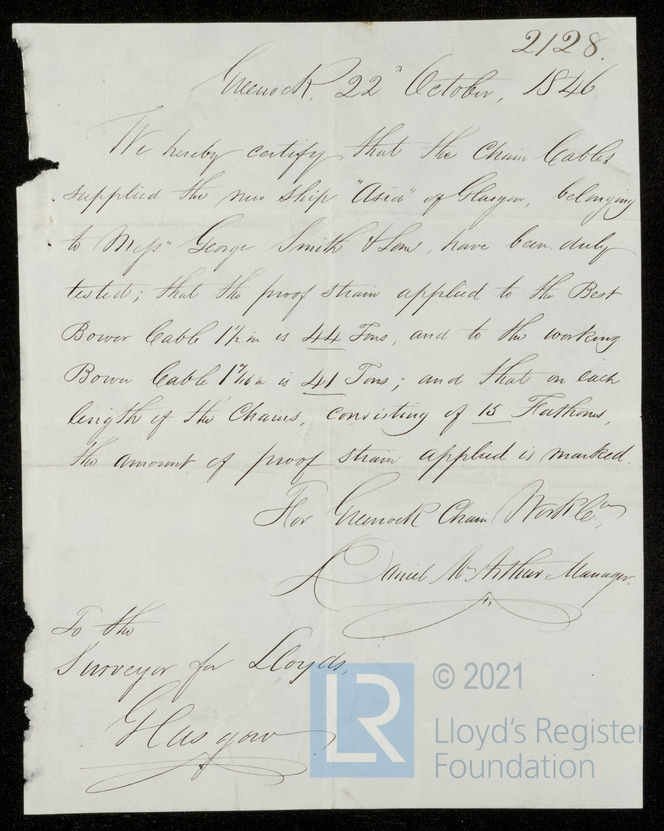 2128.
Greenock, 22d October, 1846
We hereby certify that the Chain Cables
supplied the new ship "Asia" of Glasgow, belonging
to Messrs George Smith & Sons, have been duly
tested; that the proof strain applied to the Best
Bower Cable 1½ in is 44 Tons, and to the working
Bower Cable 1 7/16 in is 41 Tons; and that on each
length of the Chains, consisting of 15 Fathoms,
the amount of proof strain applied is marked.
For Greenock Chain Work Co,
Daniel McArthur Manager.
To the
Surveyor for Lloyds,
Glasgow
LR
© 2021
Lloyd's Register
Foundation